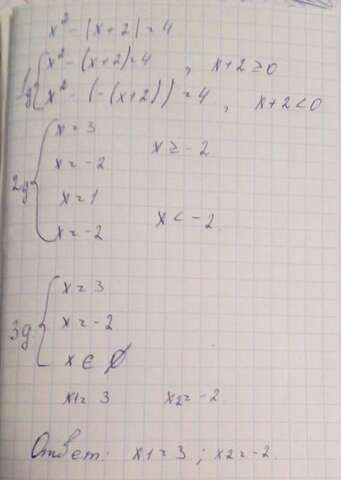 x² - |x+2| = 4
1д { x² - (x+2) = 4 , x+2 ≥ 0
x² - (-(x+2)) = 4 , x+2 < 0
2д { x = 3
x = -2 x ≥ -2
x = 1
x = -2 x < -2
3д. { x = 3
x = -2
x ∈ ∅
x1 = 3 x2 = -2
Ответ: x1 = 3 ; x2 = -2.